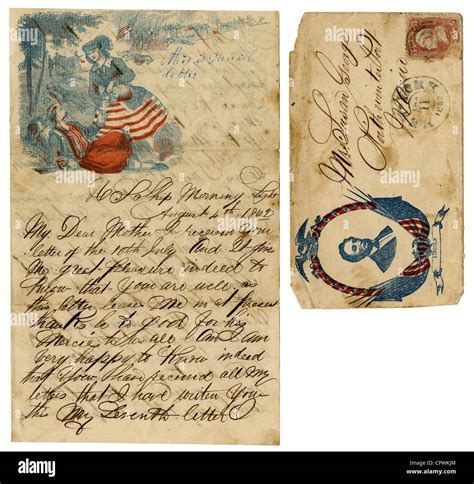 this is
letter
U S Ship Morning Light
August 4th 1862
My Dear Mother I received your
letter of the 10th July and It give
me the great pleasure indeed to
know that you are well as
this letter leave me in at present
thanks be to God for his
Mercie to us all I am
very happy to know indeed
that you have received all my
letters that I have writen you
this my Seventh letter
Gray
Maine
alamy
Image ID: CPWKJM
www.alamy.com